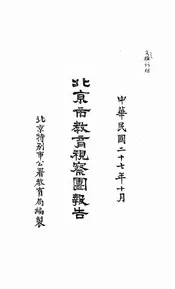 中華民國二十七年十月
北京市教育視察團報告
北京特別市公署教育局編製